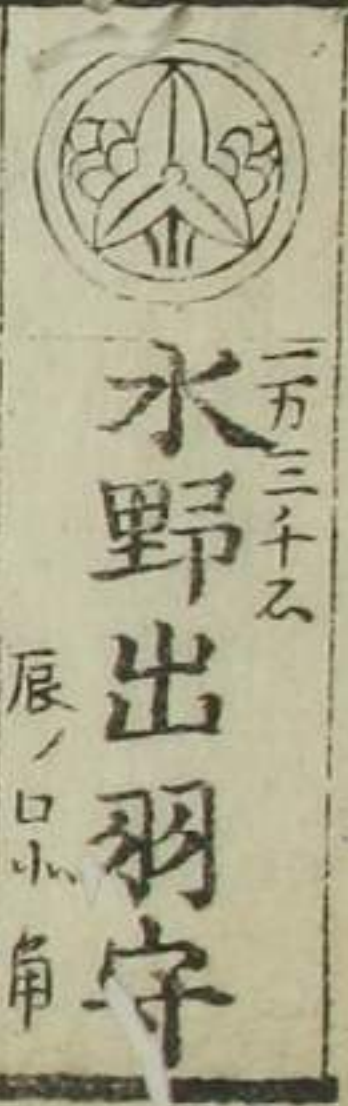 一万三千石
水野出羽守
辰ノ口北角